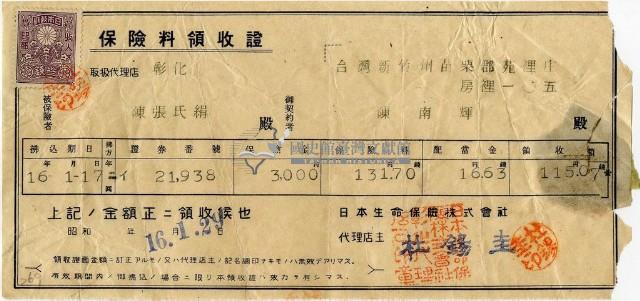 保險料領收證
取扱代理店 彰化
台灣新竹州苗栗郡苑裡庄
房裡一〇五
被保險者 陳張氏絹 殿
御契約者 陳南輝 殿
拂込期日 拂方 證券番號 保險金 保險料 配當金 領收額
16年1月-17日 イ 21,938 3,000 131.70 16.63 115.07
國史館臺灣文獻館
上記ノ金額正ニ領收候也
昭和 年 月 日
16.1.29
日本生命保險株式會社
代理店主 杜錫圭
領收證書金額ニ訂正アルモノ又ハ代理店主ノ記名調印ナキモノハ無效デアリマス。
有效期間内ノ御拂込ノ場合ニ限リ本領收證ハ效力ヲ有シマス。
269